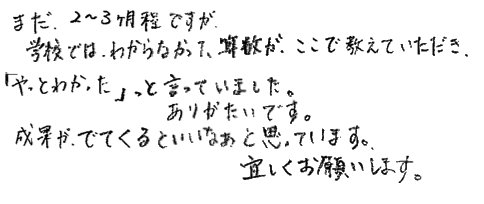 まだ、2～3ヶ月程ですが、
学校では、わからなかった、算数が、ここで教えていただき、
「やっとわかった」っと言っていました。
ありがたいです。
成果が、でてくるといいなぁと思っています。
宜しくお願いします。